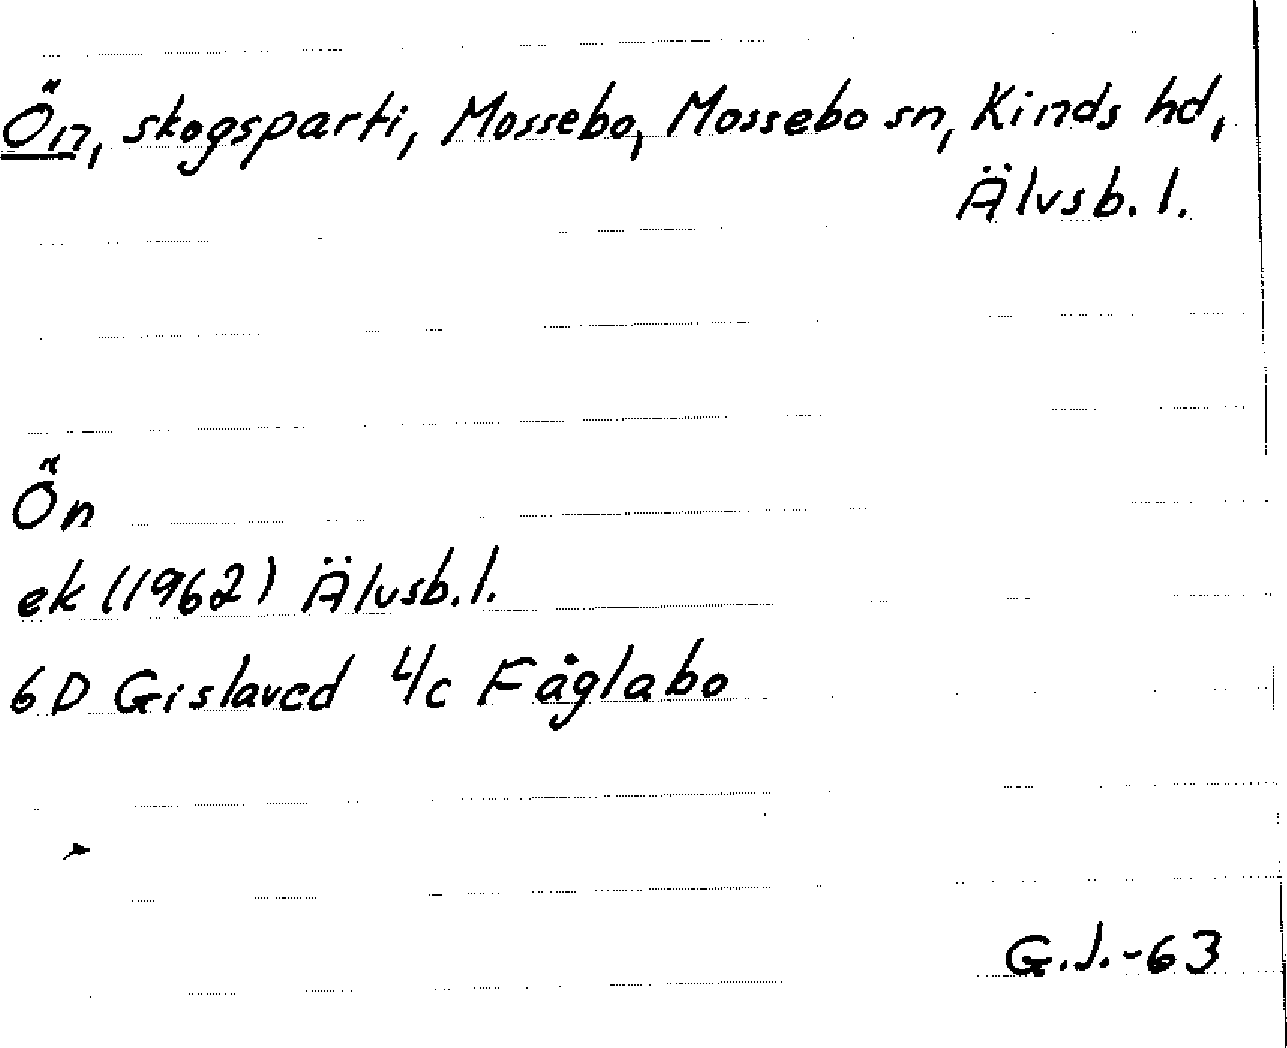 Ön, skogsparti, Mossebo, Mossebo sn, Kinds hd,
Älvsb. l.
Ön
ek (1962) Älvsb. l.
6D Gislaved 4c Fåglabo
G.J.-63